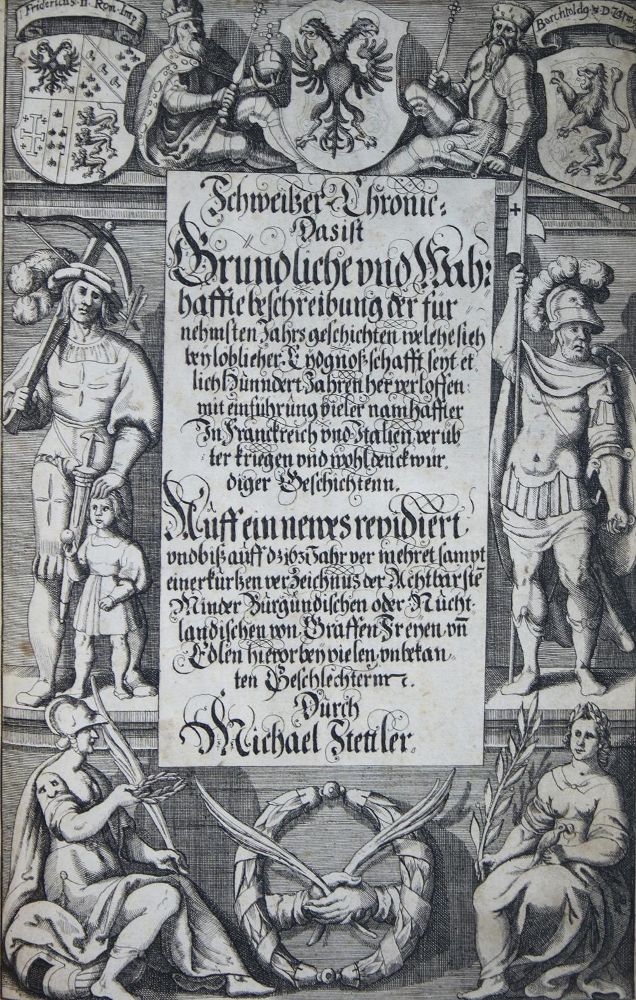 Fridericus. II. Rom. Imp.
Berchtoldg 5 D. Zerin
Schweitzer-Chronic:
Das ist
Grundliche vnd Wah:
haffte beschreibung der für
nehmsten Jahrs geschichten welche sich
bey loblicher Eydgnoßschafft seyt et
lich Hunndert Jahren her verloffen:
mit einführung vieler namhaffter
In Franckreich vnd Italien verüb
ter kriegen vnd wohl denckwür
diger Geschichtenn.
Auff ein newes revidiert
vnd biß auff dz 1631 Jahr vermehret sampt
einer kurtzen verzeichnus der Achtbarstē
Minder Burgundischen oder Nücht
landischen von Graffen Freyen vn̄
Edlen hievor beÿ vielen vnbekan
ten Geschlechternn.
Durch
Michael Stettler.